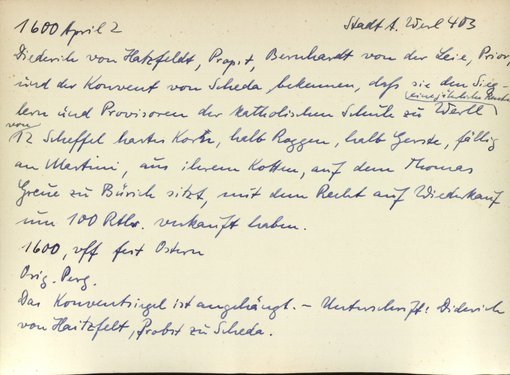 1600 April 2 Stadt A. Werl 403
Diederich von Hatzfeldt, Propst, Bernhardt von der Leie, Prior,
und der Konvent von Scheda bekennen, daß sie den Sieg-
eine jährliche Rente
lern und Provisoren der katholischen Schule zu Werll
von
12 Scheffel hartes Korn, halb Roggen, halb Gerste, fällig
an Martini, aus ihrem Kotten, auf dem Thomas
Greue zu Bürich sitzt, mit dem Recht auf Wiederkauf
um 100 Rtlr. verkauft haben.
1600, uff fest Ostern
Orig. Perg.
Das Konventsiegel ist angehängt. - Unterschrift: Diderich
von Haitzfelt, Probst zu Scheda.